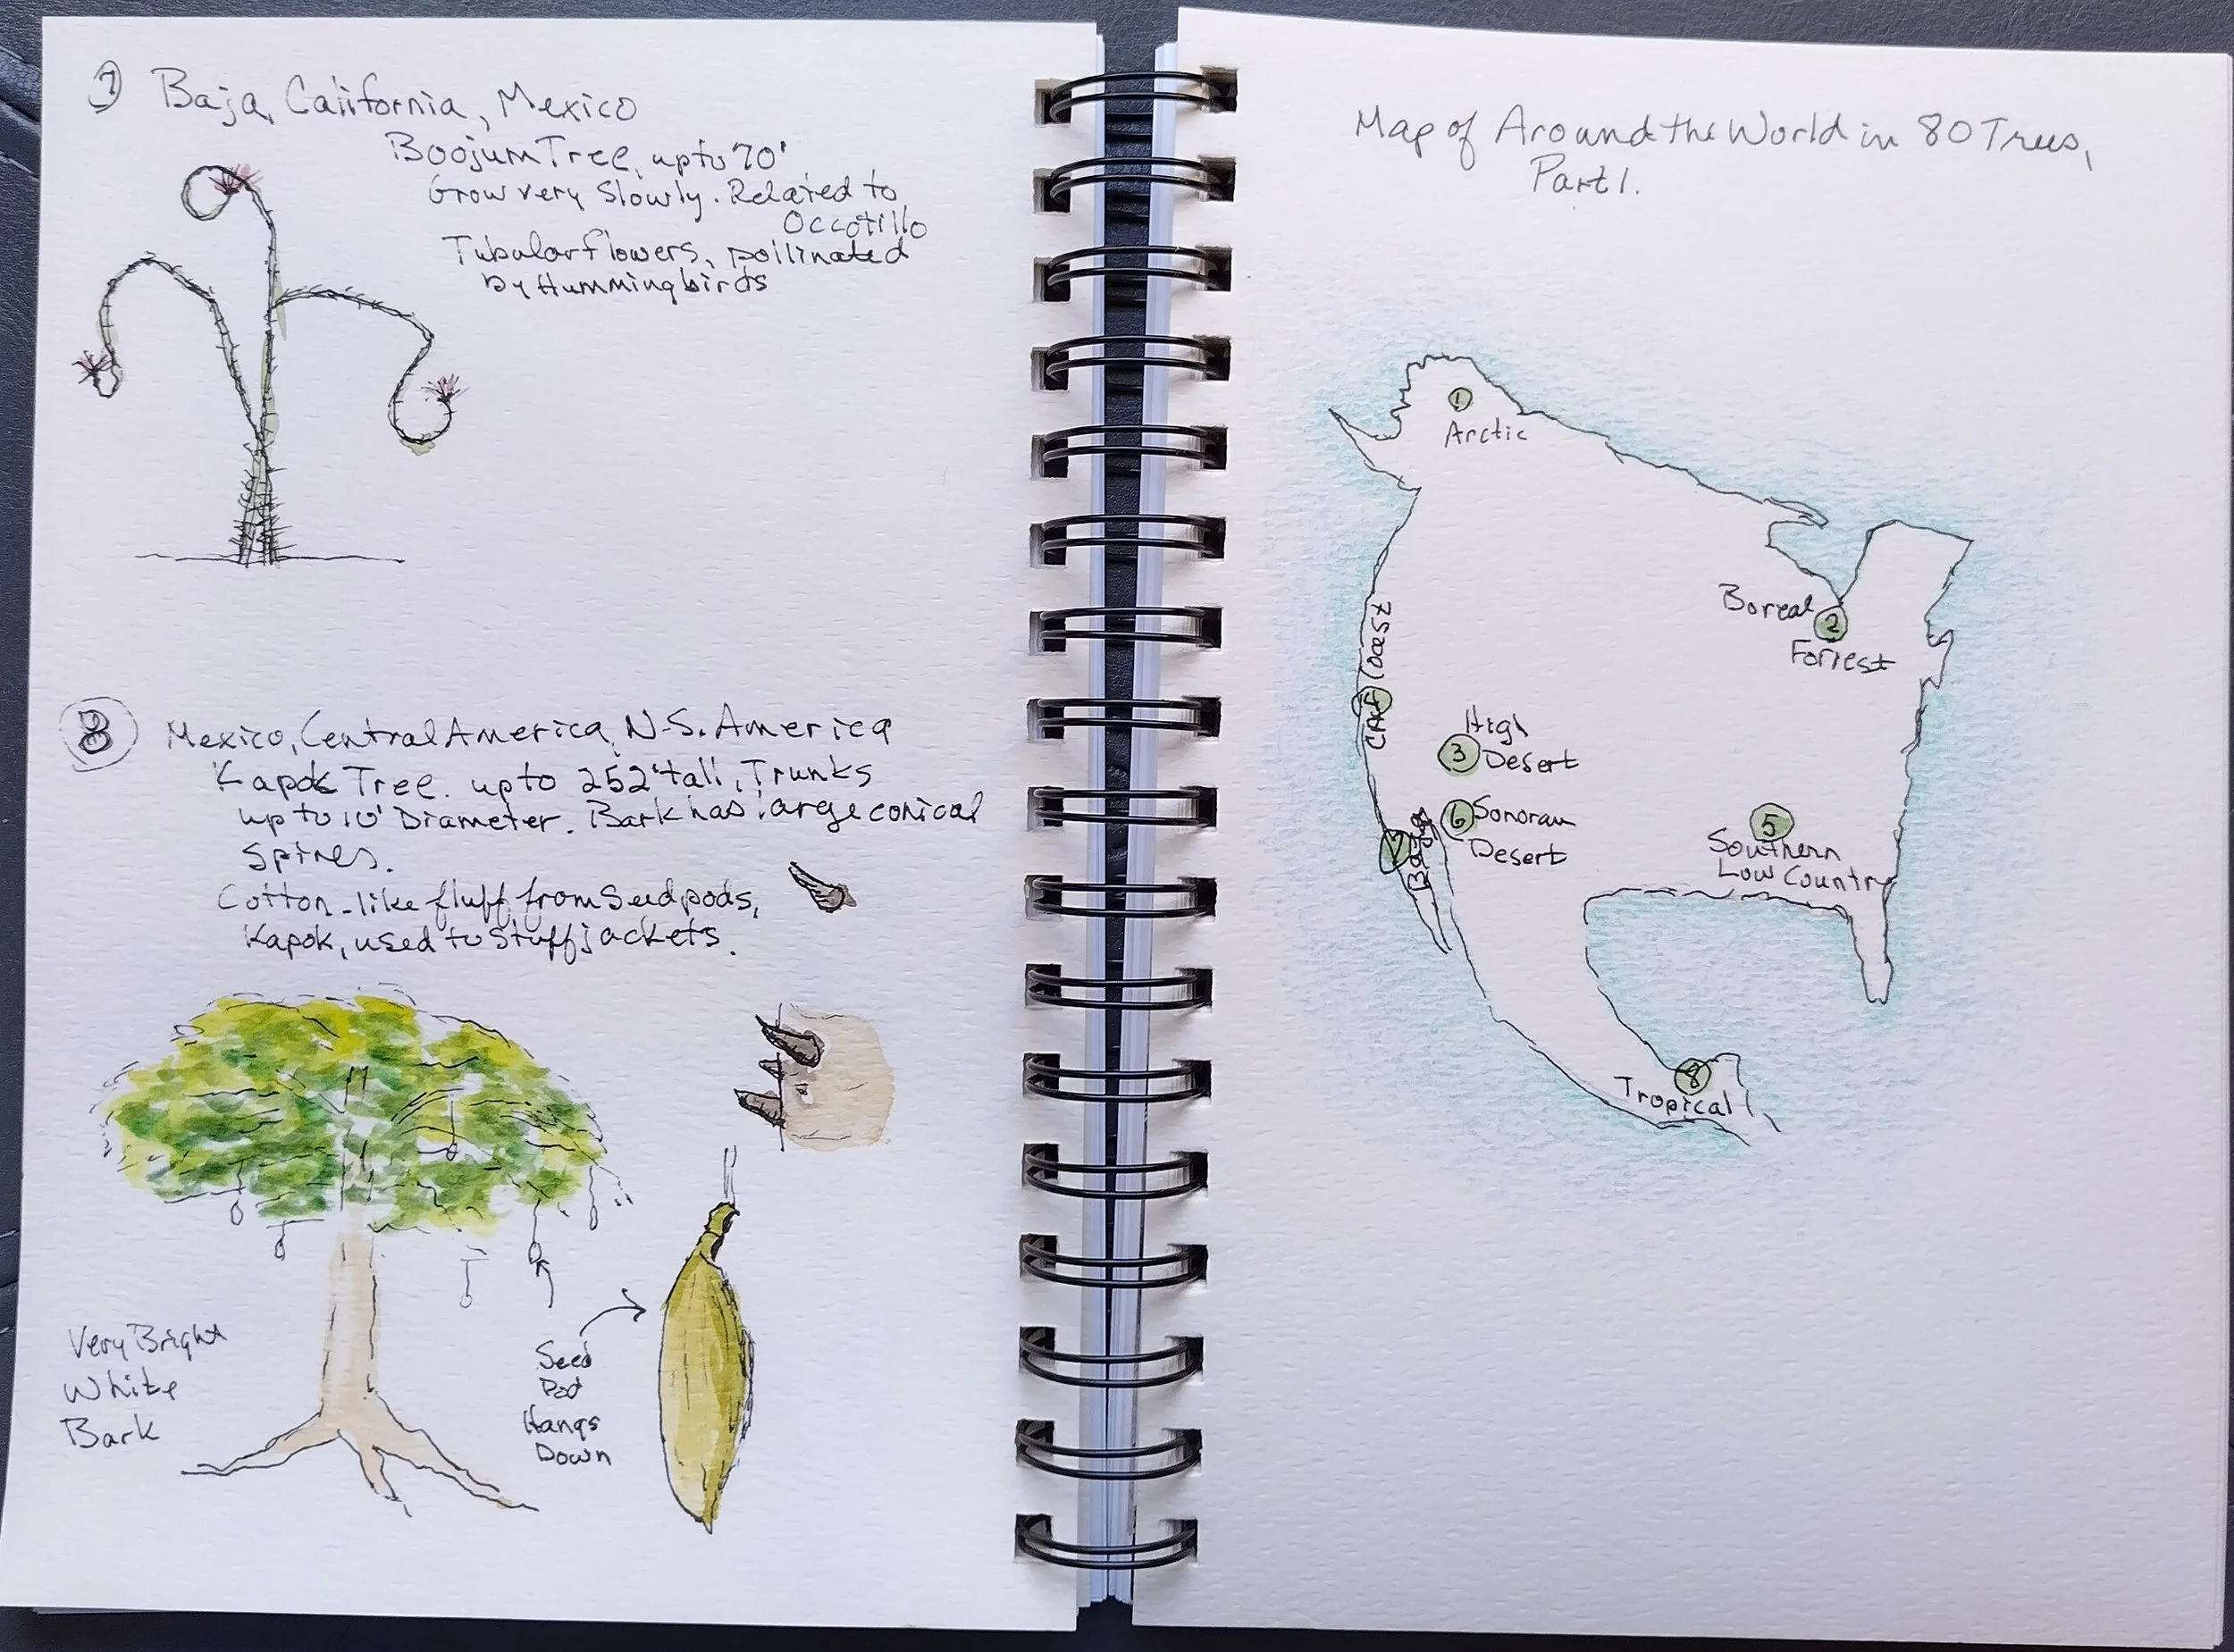 7 Baja, California, Mexico
Boojum Tree, up to 70'
Grow very Slowly. Related to
Occotillo
Tubular flowers, pollinated
by Hummingbirds
8 Mexico, Central America, N-S. America
Kapok Tree. up to 252' tall, Trunks
up to 10' Diameter. Bark has large conical
Spines.
Cotton-like fluff from Seed pods,
Kapok, used to Stuff jackets.
Very Bright
White
Bark
Seed
Pod
Hangs
Down
Map of Around the World in 80 Trees,
Part 1.
1
Arctic
Boreal
2
Forrest
CA Coast
High
3 Desert
6 Sonoran
Desert
7 Baja
5
Southern
Low Country
8
Tropical